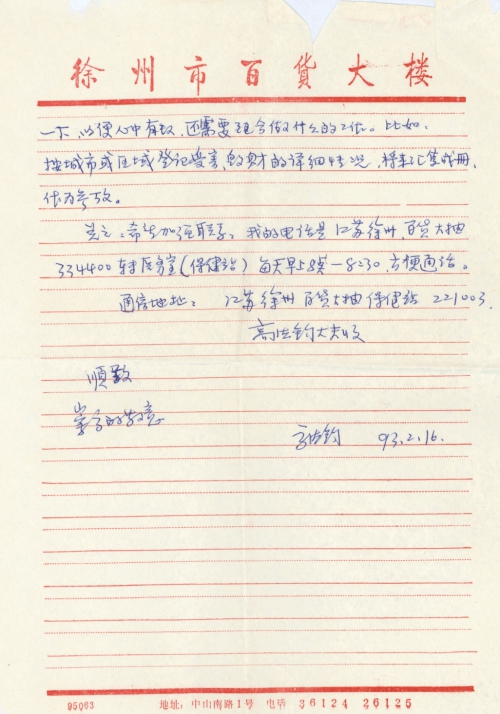 徐州市百货大楼
一下,以便心中有数,还需要配合做什么的工作。比如,
按城市或区域登记受害人财的详细情况,将来汇集成册,
作为参考。
总之,希望加强联系,我的电话是江苏徐州百货大楼
334400转医务室(保健站)每天早上 —8:30,方便通话。
通信地址:江苏徐州百货大楼保健站 221003.
高 钧大夫收
顺致
崇高的敬意
高 钧 93.2.16.
95063 地址:中山南路1号 电话 36124 26125